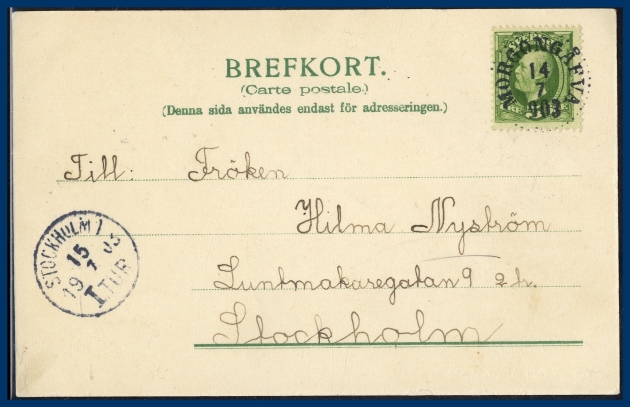 BREFKORT.
(Carte postale.)
(Denna sida användes endast för adresseringen.)
MORGONGÅFVA
14
7
903
Till: Fröken
Hilma Nyström
Luntmakaregatan 9 2 h.
Stockholm
STOCKHOLM 1
15
19 7 03
I TUR